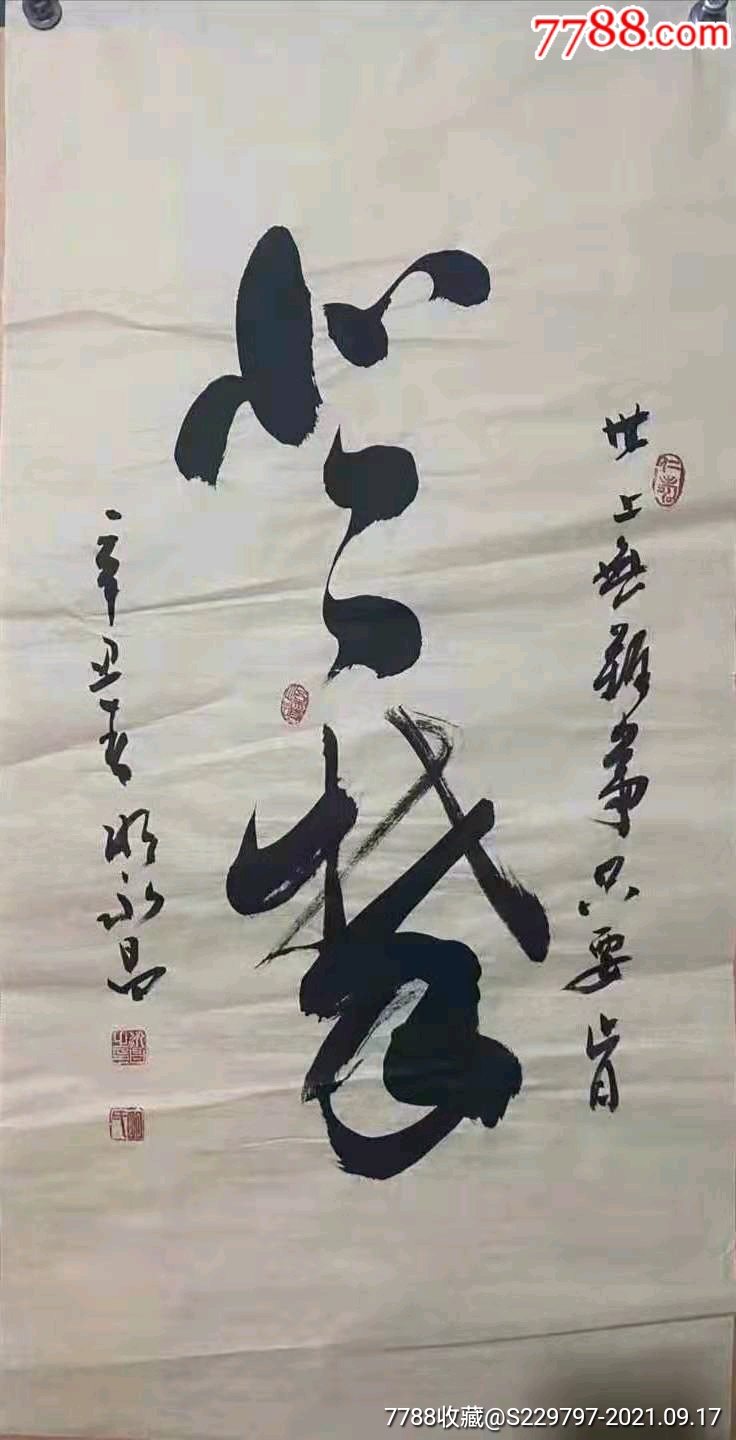 7788.com
世上無難事只要肯
登攀
辛丑春 永昌
7788收藏@S229797-2021.09.17